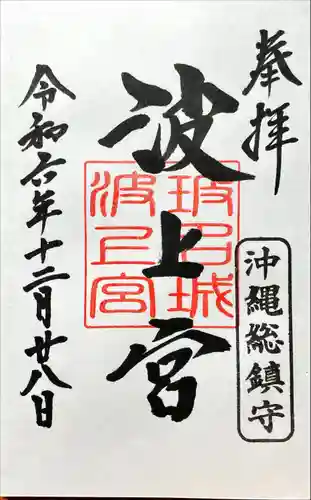 奉拝
沖縄総鎮守
波上宮
令和六年十二月廿八日
波上宮